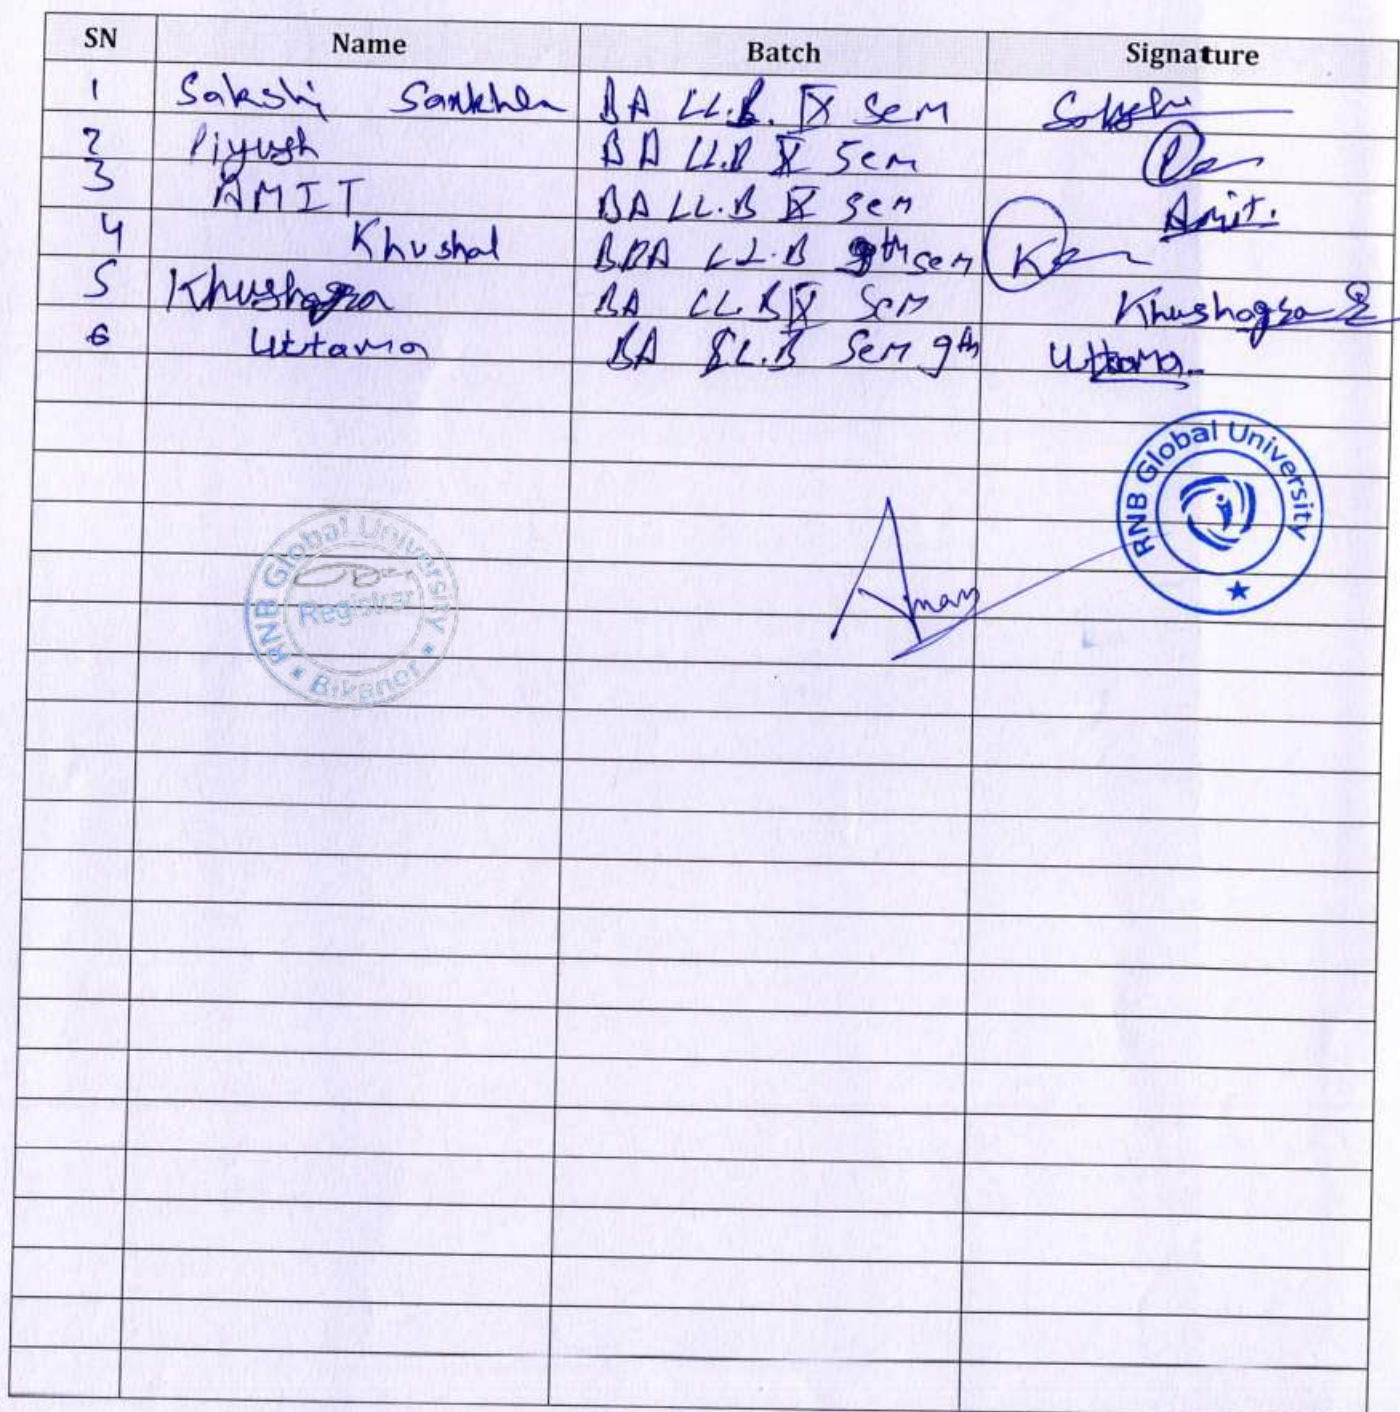 SN Name Batch Signature
1 Sakshi Sankhla BA LL.B. IX Sem Sakshi
2 Piyush BA LL.B IX Sem
3 AMIT BA LL.B IX Sem Amit.
4 Khushal BBA LL.B 9th sem
5 Khushagra BA LL.B IX Sem Khushagra
6 Uttama BA LL.B Sem 9th Uttama
RNB Global University
RNB Global University
Registrar
Bikaner
Aman